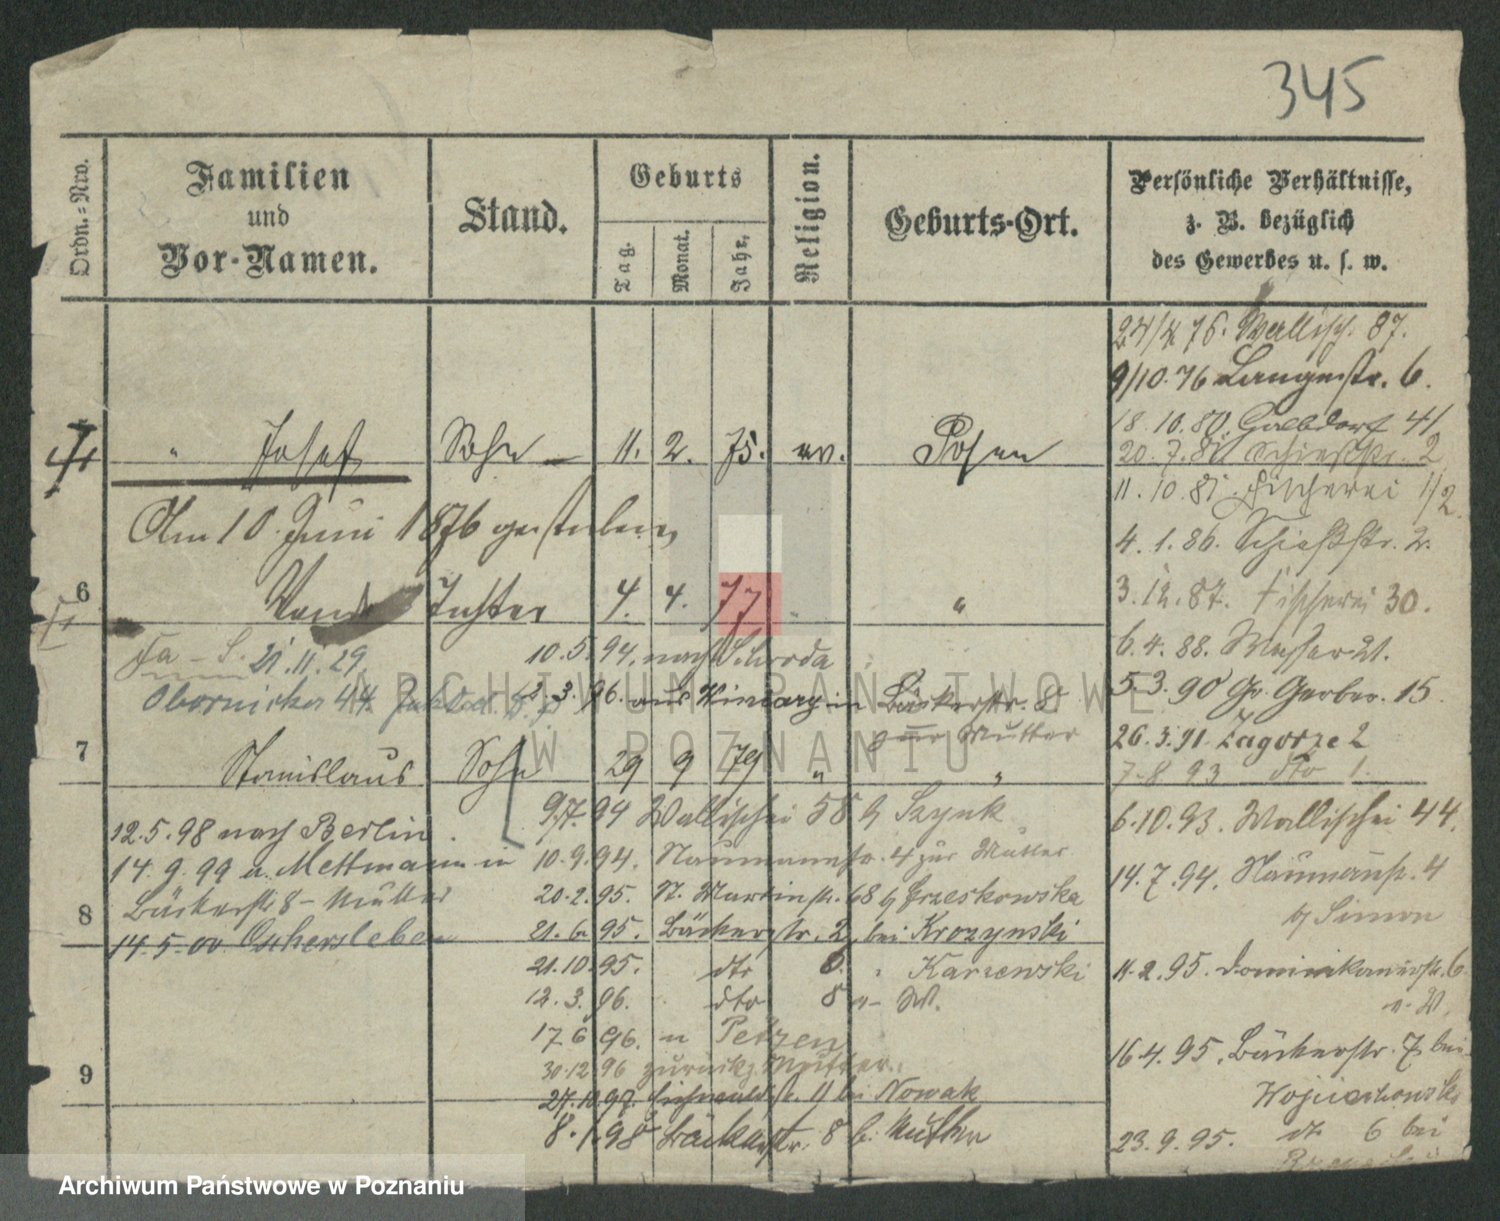 345
Ordn.-Nro.
Familien
und
Vor-Namen.
Stand.
Geburts
Tag.
Monat.
Jahr.
Religion.
Geburts-Ort.
Persönliche Verhältnisse,
z. B. bezüglich
des Gewerbes u. s. w.
24/4 76. Wallisch. 87.
9/10. 76 Langestr. 6.
18. 10. 80.
" Josef Sohn 11. 2. 75. ev. Posen
20. 7. 81. Schießstr. 2
11. 10. 81. Fischerei 1/2
Am 10. Juni 1876 gestorben
4. 1. 86. Schießstr. 2.
6 Tochter 4. 4. 77 " "
3. 12. 87. Fischerei 30.
21. 11. 29.
10. 5. 94. nach Schroda
6. 4. 88. Wasser 21.
Obornicker 44.
3. 3. 96. aus Winiary in Bäckerstr. 8
zur Mutter
5. 3. 90 Gr. Gerber. 15
26. 3. 91. Zagorze 2
7 Stanislaus Sohn 29 9 79 " "
7. 8. 93 dto 1.
9. 7. 94 Wallischei 58 b
6. 10. 93. Wallischei 44.
12. 5. 98 nach Berlin.
14. 9. 99 a. Mettmann in
10. 9. 94. Naumannstr. 4 zur Mutter
14. 7. 94. Naumannstr. 4
b Simon
Bäckerstr. 8 - Mutter
20. 2. 95. St. Martinstr. 68 b Grzeskowska
8
14. 5. 00 Oschersleben
21. 6. 95. Bäckerstr. 2, bei Krozynski
21. 10. 95. dto 6. " Karzewski
11. 2. 95. Dominikanerstr. 6
12. 3. 96. dto 8 - W.
17 6 96. n Petzen
16. 4. 95. Bäckerstr. 7 bei
Wojciechowski
9
30. 12. 96 zurück z. Mutter.
27. 10. 97. 11 bei Nowak
8. 1. 98 Bäckerstr. 8 b. Mutter
23. 9. 95. dto 6 bei
ARCHIWUM PAŃSTWOWE
W POZNANIU
Archiwum Państwowe w Poznaniu